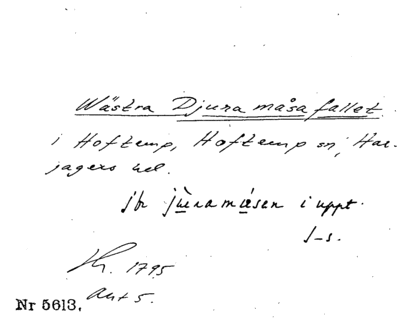 Wästra Djura måsa fallet
i Hoftemp, Hoftemp sn, Har-
jagers hd.
jfr jùnamúsen i uppt.
J-s.
1795
Akt 5.
Nr 5613.